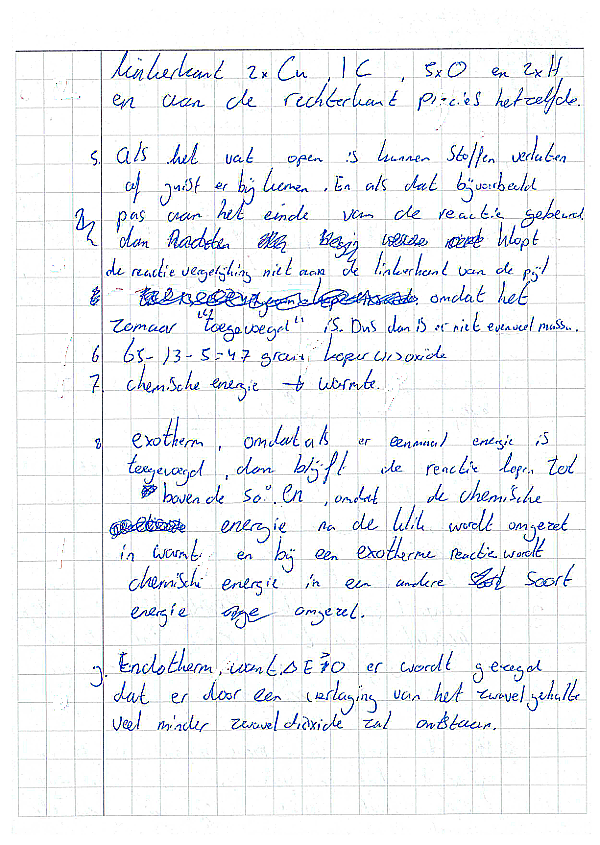 linkerkant 2x Cu, 1 C, 5x O en 2x H
en aan de rechterkant precies hetzelfde.
5. Als het vat open is kunnen stoffen verlaten
of juist er bij komen. En als dat bijvoorbeeld
pas aan het einde van de reactie gebeurd
dan klopt
de reactievergelijking niet aan de linkerkant van de pijl
omdat het
zomaar "toegevoegd" is. Dus dan is er niet evenveel massa.
6 65-13-5=47 gram koper
7. chemische energie → warmte.
8 exotherm, omdat als er eenmaal energie is
toegevoegd, dan blijft de reactie lopen tot
boven de 50°. En, omdat de chemische
energie na de klik wordt omgezet
in warmte en bij een exotherme reactie wordt
chemische energie in een andere soort
energie omgezet.
9. Endotherm, want ΔE>0 er wordt gezegd
dat er door een verlaging van het zwavelgehalte
veel minder zwaveldioxide zal ontstaan.